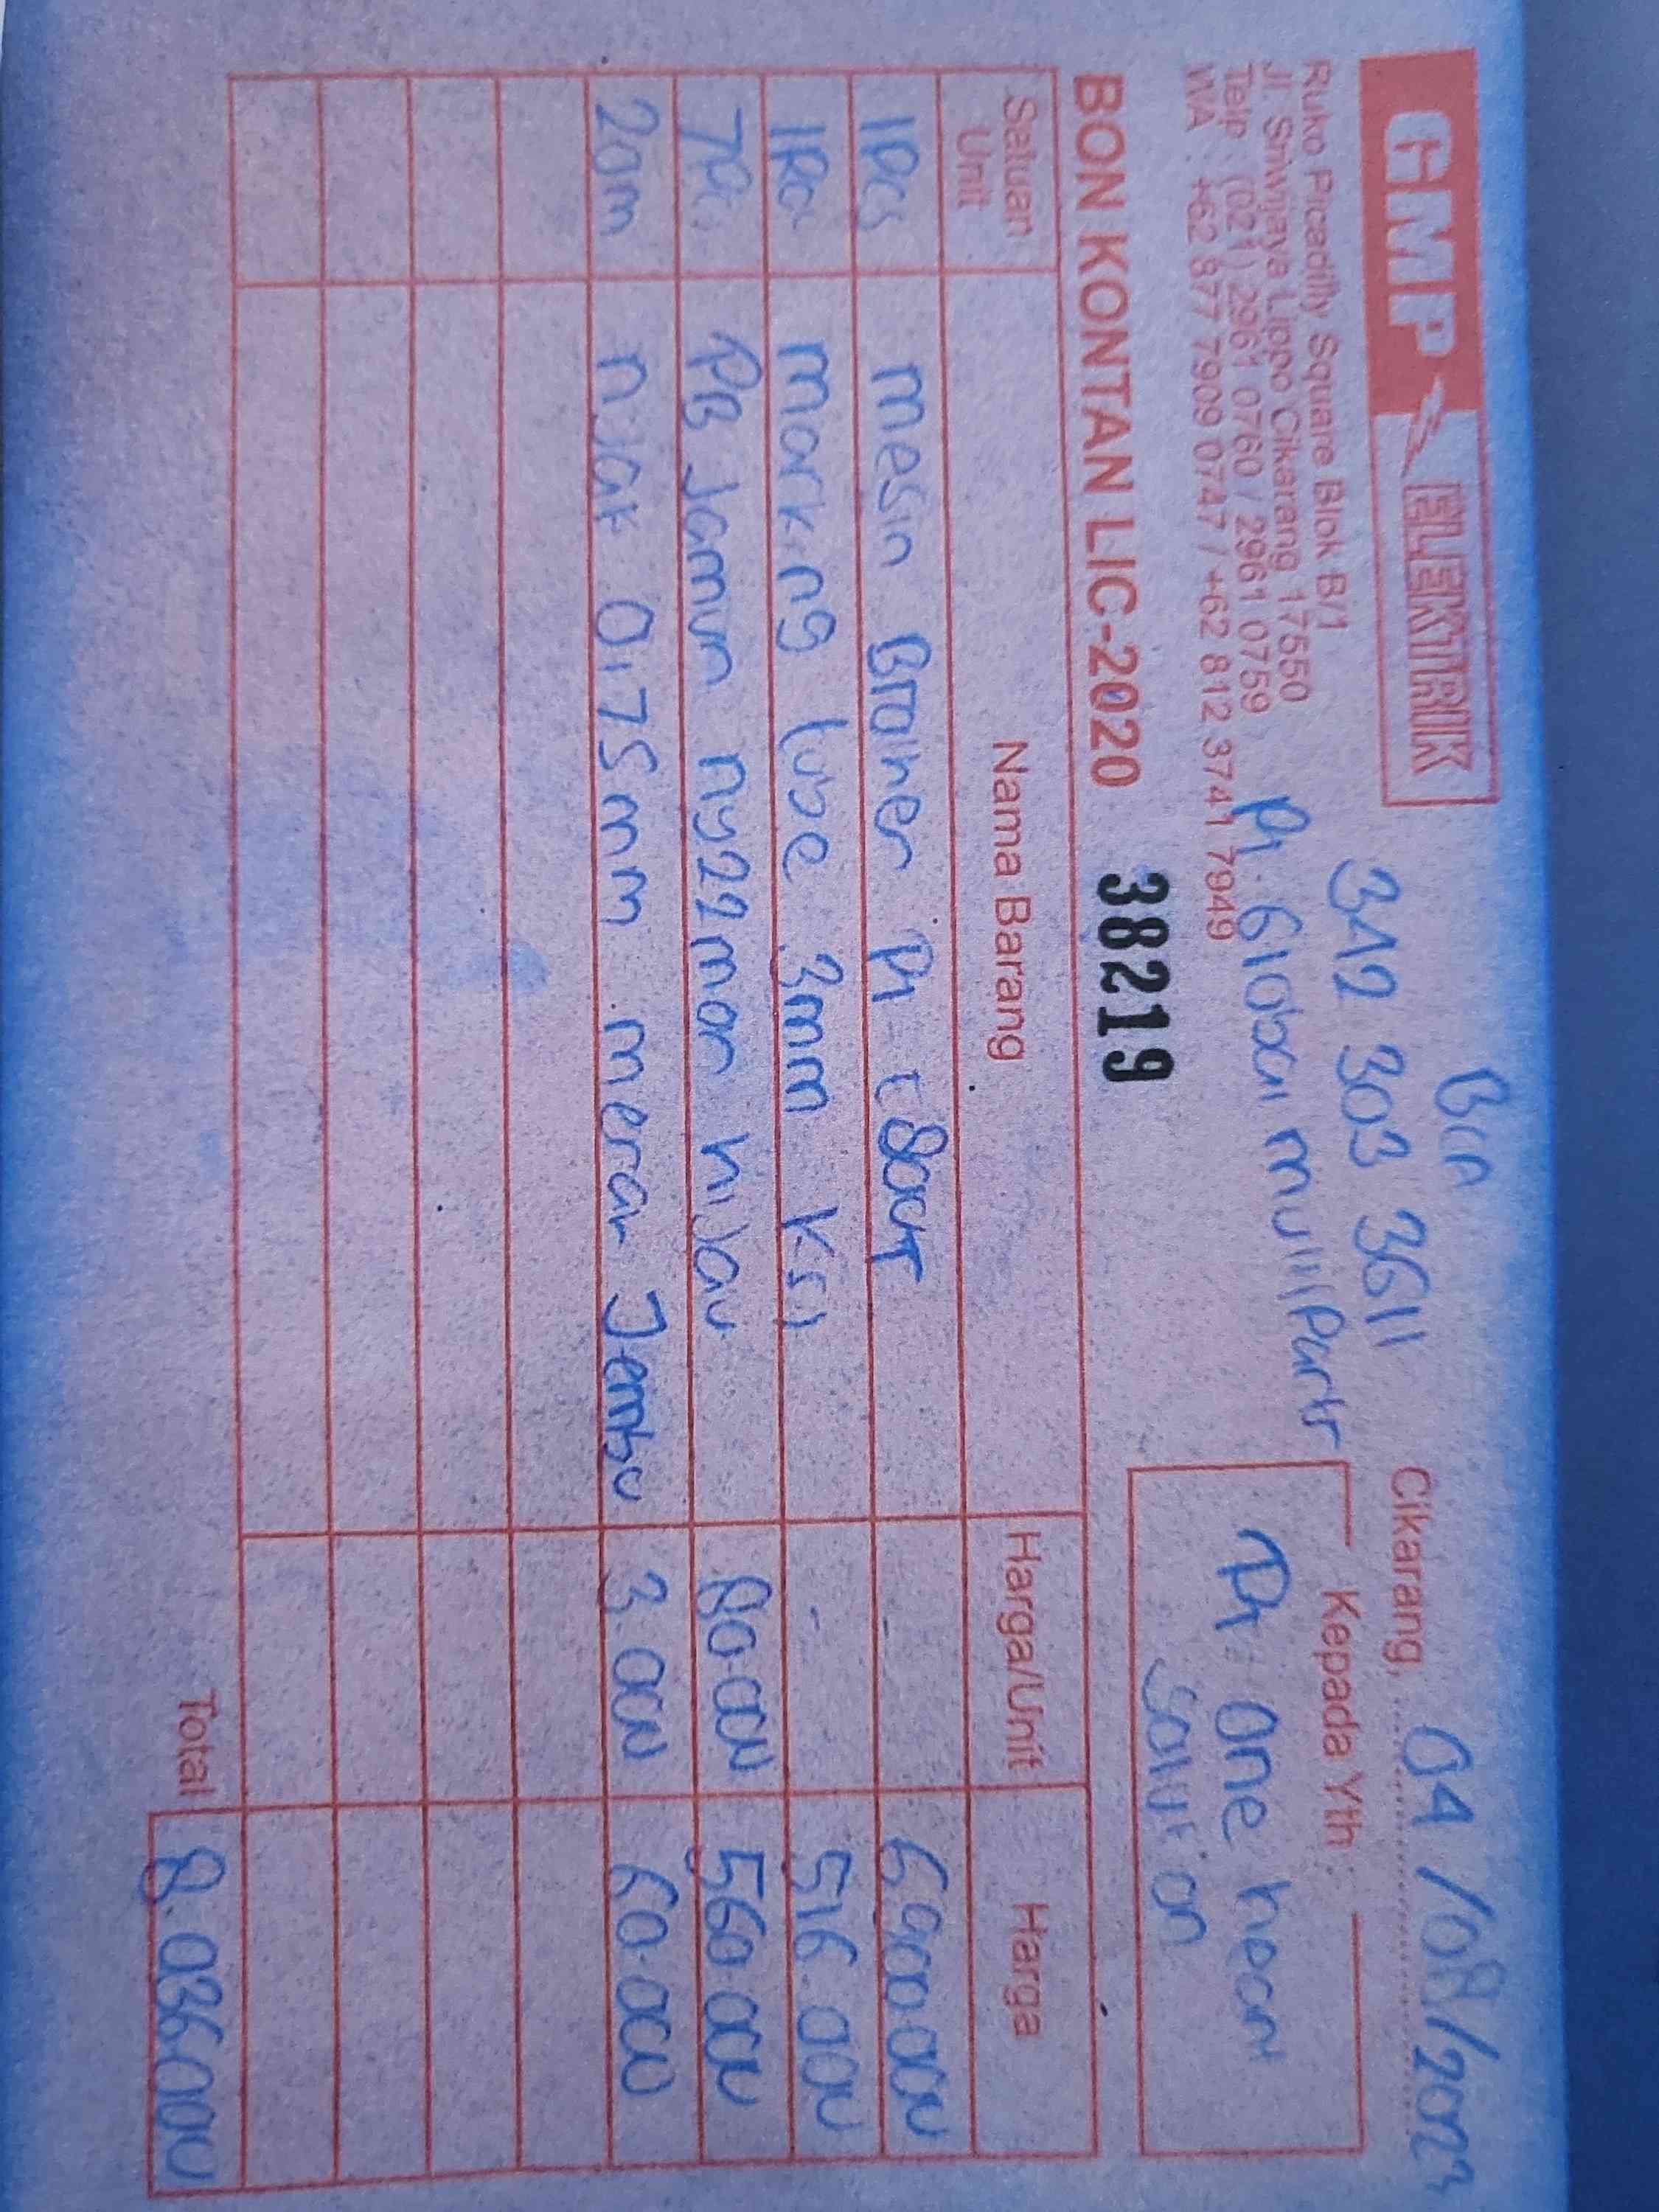 GMP ELEKTRIK
Ruko Picadilly Square Blok B/1
Jl. Sriwijaya Lippo Cikarang 17550
Telp : (021) 2961 0760 / 2961 0759
WA : +62 877 7909 0747 / +62 812 3741 7949
342 303 3611
Cikarang, 04/08/2023
Kepada Yth :
Pt one heart
Solution
BON KONTAN LIC-2020 38219
Satuan Unit Nama Barang Harga/Unit Harga
1Pcs mesin Brother Pt - 6.900.000
1Pcs marking tube 3mm - 516.000
7Pcs PB Jamur hijau 80.000 560.000
20m 0,75mm merah Jembo 3.000 60.000
Total 8.036.000